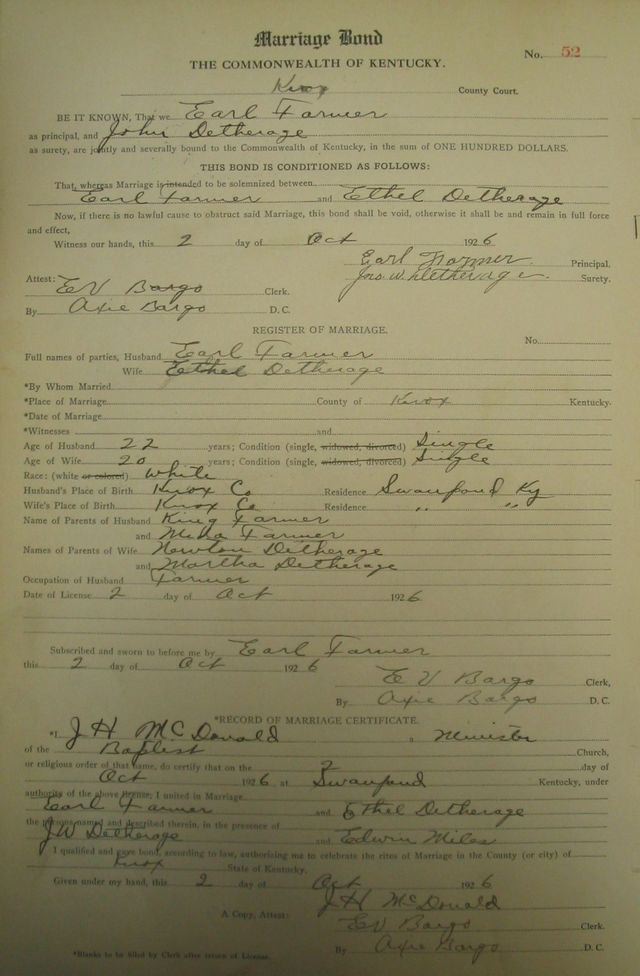 Marriage Bond
No. 52
THE COMMONWEALTH OF KENTUCKY.
Knox County Court.
BE IT KNOWN, That we Earl Farmer
as principal, and John Detherage
as surety, are jointly and severally bound to the Commonwealth of Kentucky, in the sum of ONE HUNDRED DOLLARS.
THIS BOND IS CONDITIONED AS FOLLOWS:
That, whereas Marriage is intended to be solemnized between
Earl Farmer and Ethel Detherage
Now, if there is no lawful cause to obstruct said Marriage, this bond shall be void, otherwise it shall be and remain in full force
and effect,
Witness our hands, this 2 day of Oct 1926
Earl Farmer Principal,
Jno. W. Detherage Surety.
Attest:
E V Bargo Clerk.
By Axie Bargo D. C.
REGISTER OF MARRIAGE.
No.
Full names of parties, Husband Earl Farmer
Wife Ethel Detherage
*By Whom Married
*Place of Marriage County of Knox Kentucky.
*Date of Marriage
*Witnesses and
Age of Husband 22 years; Condition (single, widowed, divorced) Single
Age of Wife 20 years; Condition (single, widowed, divorced) Single
Race: (white or colored) White
Husband's Place of Birth Knox Co Residence Swanpond Ky
Wife's Place of Birth Knox Co Residence " "
Name of Parents of Husband King Farmer
and Farmer
Names of Parents of Wife Newton Detherage
and Martha Detherage
Occupation of Husband Farmer
Date of License 2 day of Oct 1926
Subscribed and sworn to before me by Earl Farmer
this 2 day of Oct 1926
E V Bargo Clerk,
By Axie Bargo D. C.
*RECORD OF MARRIAGE CERTIFICATE.
*I J H McDonald a Minister
of the Baptist Church,
or religious order of that name, do certify that on the 2 day of
Oct 1926 at Swanpond Kentucky, under
authority of the above license, I united in Marriage
Earl Farmer and Ethel Detherage
the persons named and described therein, in the presence of
J W Detherage and Edwin Miles
I qualified and gave bond, according to law, authorizing me to celebrate the rites of Marriage in the County (or city) of
Knox State of Kentucky.
Given under my hand, this 2 day of Oct 1926
J H McDonald
A Copy, Attest: E V Bargo Clerk.
By Axie Bargo D. C.
*Blanks to be filled by Clerk after return of License.